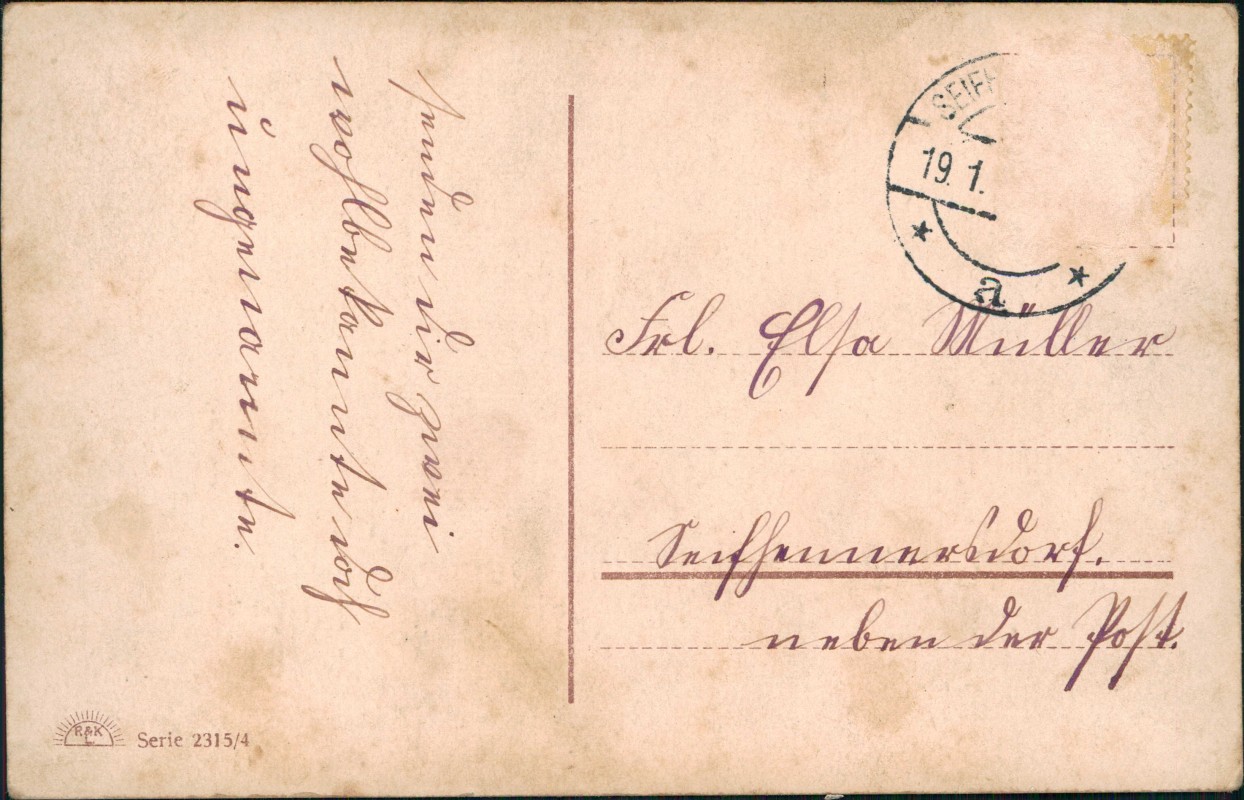 senden dir zwei
wohlbekannte doch
ungenannte.
SEIFH
19. 1.
a
Frl. Elsa Müller
Seifhennersdorf.
neben der Post.
R&K
L
Serie 2315/4